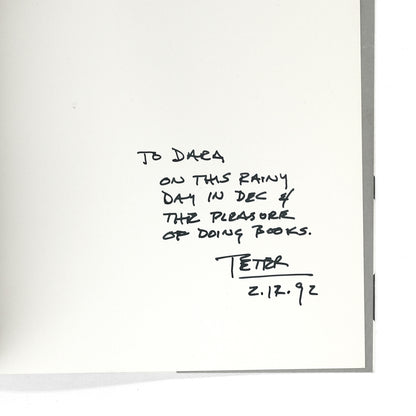 TO DARA
ON THIS RAINY
DAY IN DEC &
THE PLEASURE
OF DOING BOOKS.
PETER
2.12.92